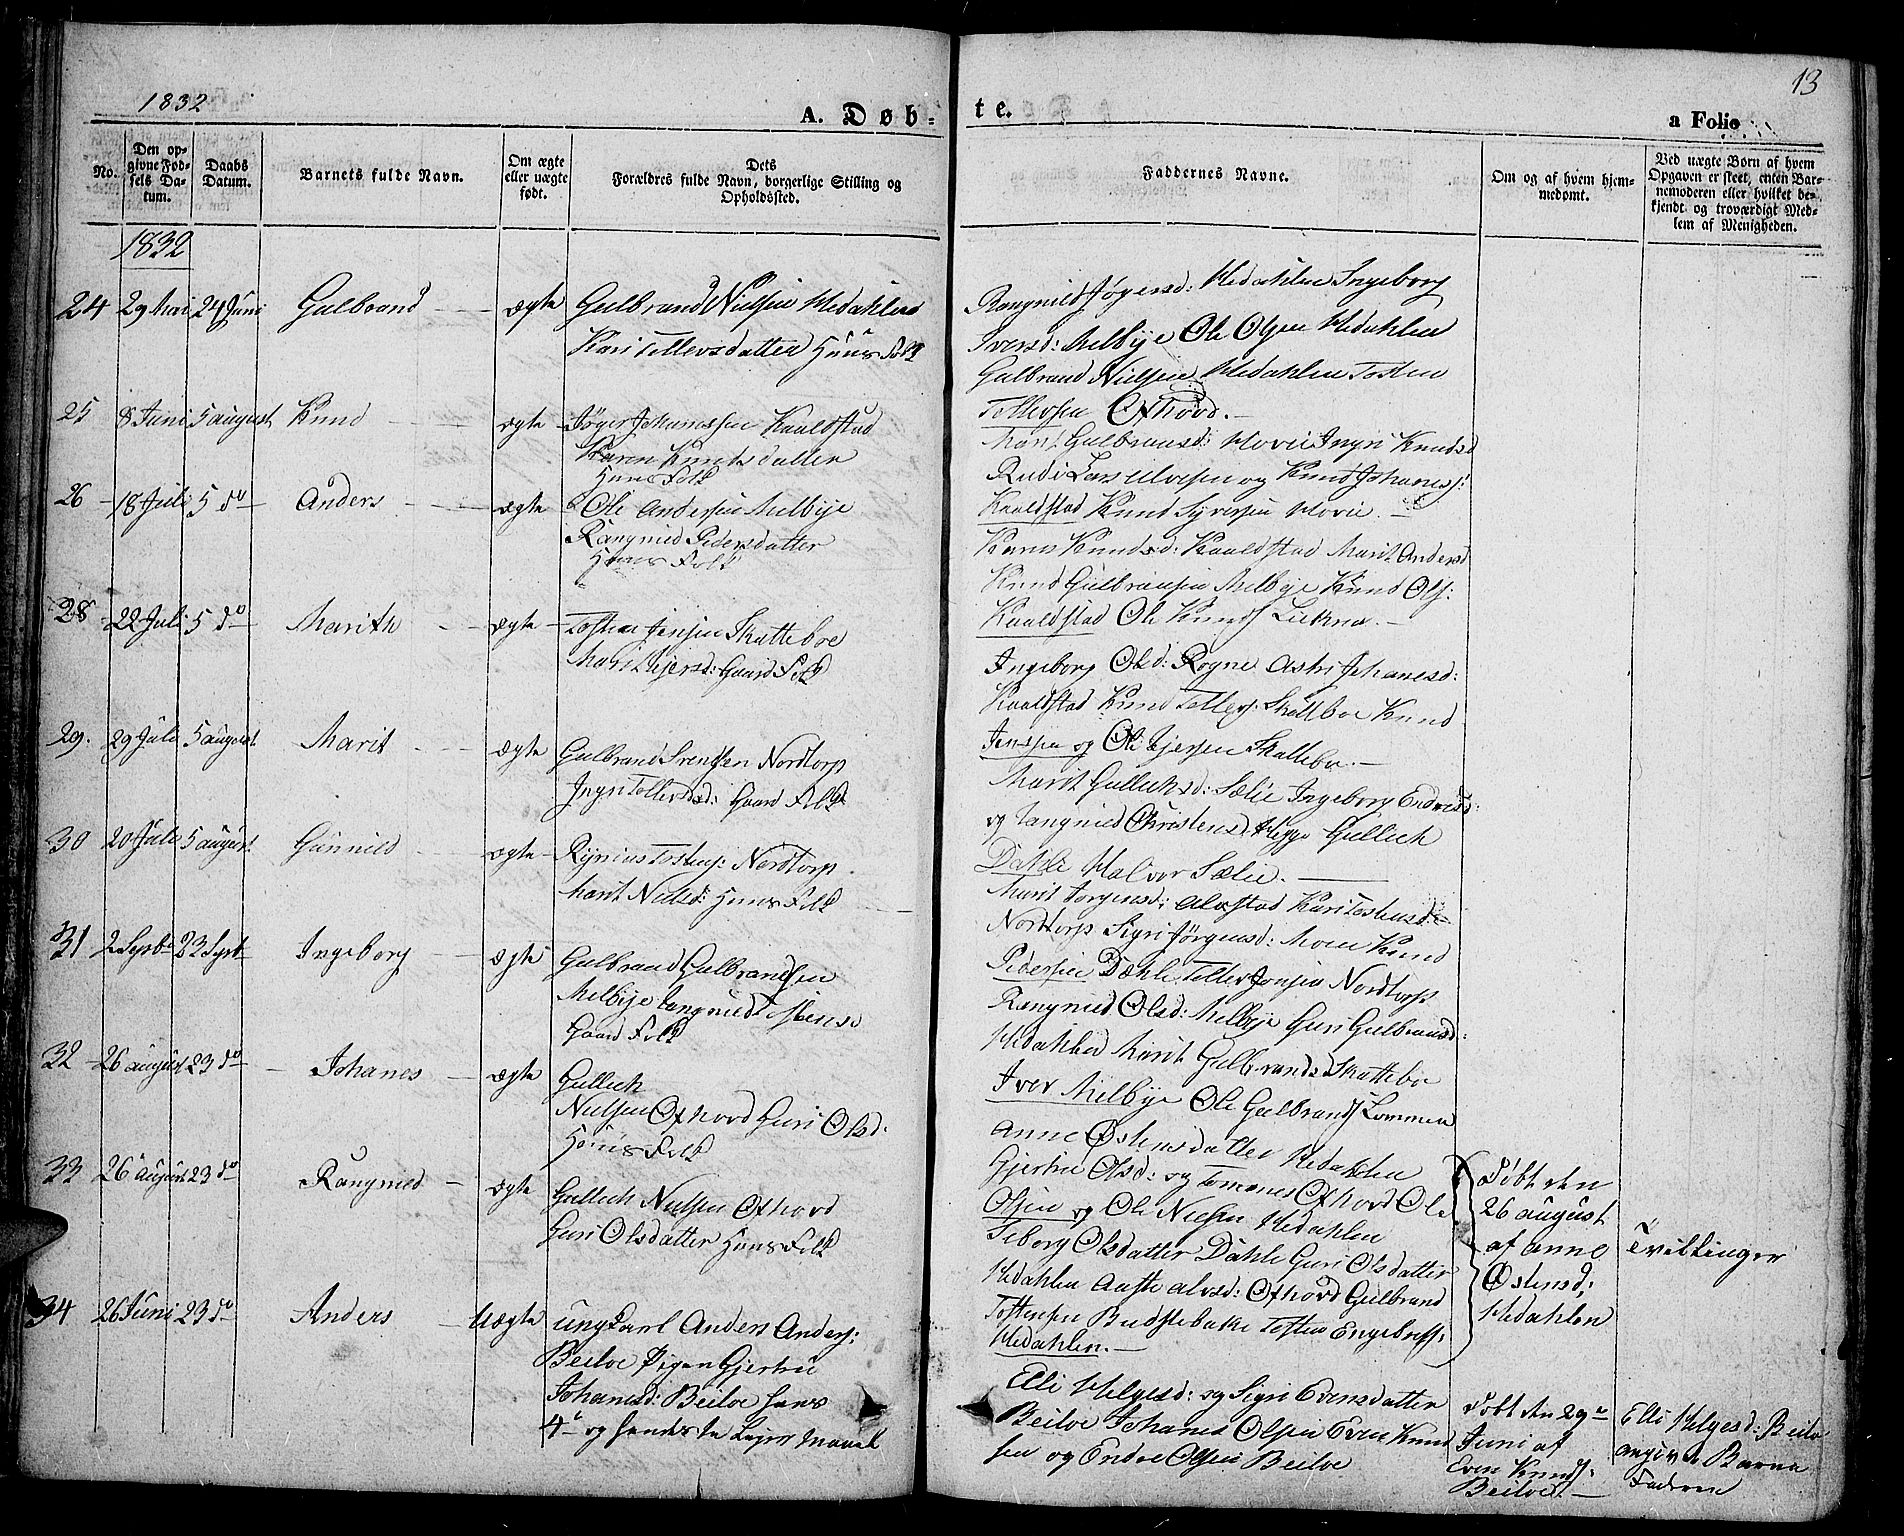 1832
13
A. Døb-
te.
a Folio
No.
Den op-
givne Fød-
sels Da-
tum.
Daabs
Datum.
Barnets fulde Navn.
Om ægte
eller uægte
født.
Dets
Forældres fulde Navn, borgerlige Stilling og
Opholdssted.
Faddernes Navne.
Om og af hvem hjem-
medømt.
Ved uægte Børn af hvem
Opgaven er skeet, enten Bar-
nemoderen eller hvilket be-
kjendt og troværdigt Med-
lem af Menigheden.
1832
24 29 Mai 24 Juni Gulbrand ægte Gulbrand Nielsen Hedahlen
Kari Tollevsdatter Huus Folk
Rangnied Jøgersd: Hedahlen Ingeborg
Iversd: Melbye Ole Olsen Hedahlen
Gulbrand Nielsen Hedahlen Tosten
Tollevsen Ofhovd.
25 8 Juni 5 august Knud ægte Jøger Johannssen Kaaldstad
Karen Knutsdatter
Huus Folk
Mari Gulbransd: Hovie Ingri Knudsd
Rudi Lars Ulvesen og Knud Johanesj:
Kaaldstad Knud Syversen Hovie.
26 18 Juli 5 do Anders ægte Ole Andersen Melbye
Rangnied Pedersdatter
Huus Folk
Karen Knudsd: Kaaldstad Marit Andersd
Knud Gulbransen Melbye Knud Ols:
Kaaldstad Ole Knuds
28 22 Juli 5 do Marith ægte Tosten Jensen Skatteboe
Marit Ejersd: Gaard Folk
Ingeborg Olsd: Rogne Astri Johanesd:
Kaaldstad Knud Tollevs: Skattboe Knud
Jensen og Ole Ejersen Skattebo.
29. 29 Juli 5 august Marit ægte Gulbrand Svendsen Nordtorp
Ingri Tollevsd: Gaard Folk
Marit Gullichsd: Sælie Ingeborg Endresd:
og Rangnied Christensd Hegge Gullich
Dahle Halvor Sælie.
30 20 Juli 5 august Gunnild ægte Tostens: Nordtorp.
Marit Nielsd: Huus Folk
Marit Jorgensd: Alvstad Kari Tostensd:
Nordtorp Sigri Jørgensd: Moen Knud
Pedersen Dahle Tollev Jonsen Nordtorp
31 2 Sepbr 23 Sepbr Ingeborg ægte Gulbrand Gulbrandsen
Melbye Rangnied Tostensd
Gaard Folk
Rangnied Olsd: Melbye Guri Gulbransd:
Hedahlen Marit Gulbrandsd Skattebo
Iver Melbye Ole Gulbrands Lommen
32 26 august 23 do Johanes ægte Gullich
Nielsen Ofhovd Guri Olsd:
Huus Folk
Anne Østensdatter Hedahlen
Gjertru Olsd: og Tomenes Ofhovd Ole
Olsen og Ole Nielsen Hedahlen
33 26 august 23 do Rangnied ægte Gullich Nielsen Ofhovd
Guri Olsdatter Huus Folk
Seborg Olsdatter Dahle Guri Olsdatter
Hedahlen Aaste Alvsd: Ofhovd Gulbrand
Tostensen Budstebake Tosten Engebrets:
Hedahlen.
Døbt den
26 august
af Anne
Østensd:
Hedahlen
Tvillinger
34 26 Juni 23 do Anders Uægte ungkarl Anders Anders:
Beilve Pigen Gjertru
Johanesd: Beilve hans
4de og hendes 1te Lejer Maael
Elli Helgesd: og Sigri Evensdatter
Beilve Johanes Olsen Even Knud
sen og Endre Olsen Beilve
Døbt den 29de
Juni af
Even Knuds:
Beilve.
Elli Helgesd: Beilve
angiv. Barne
Faderen